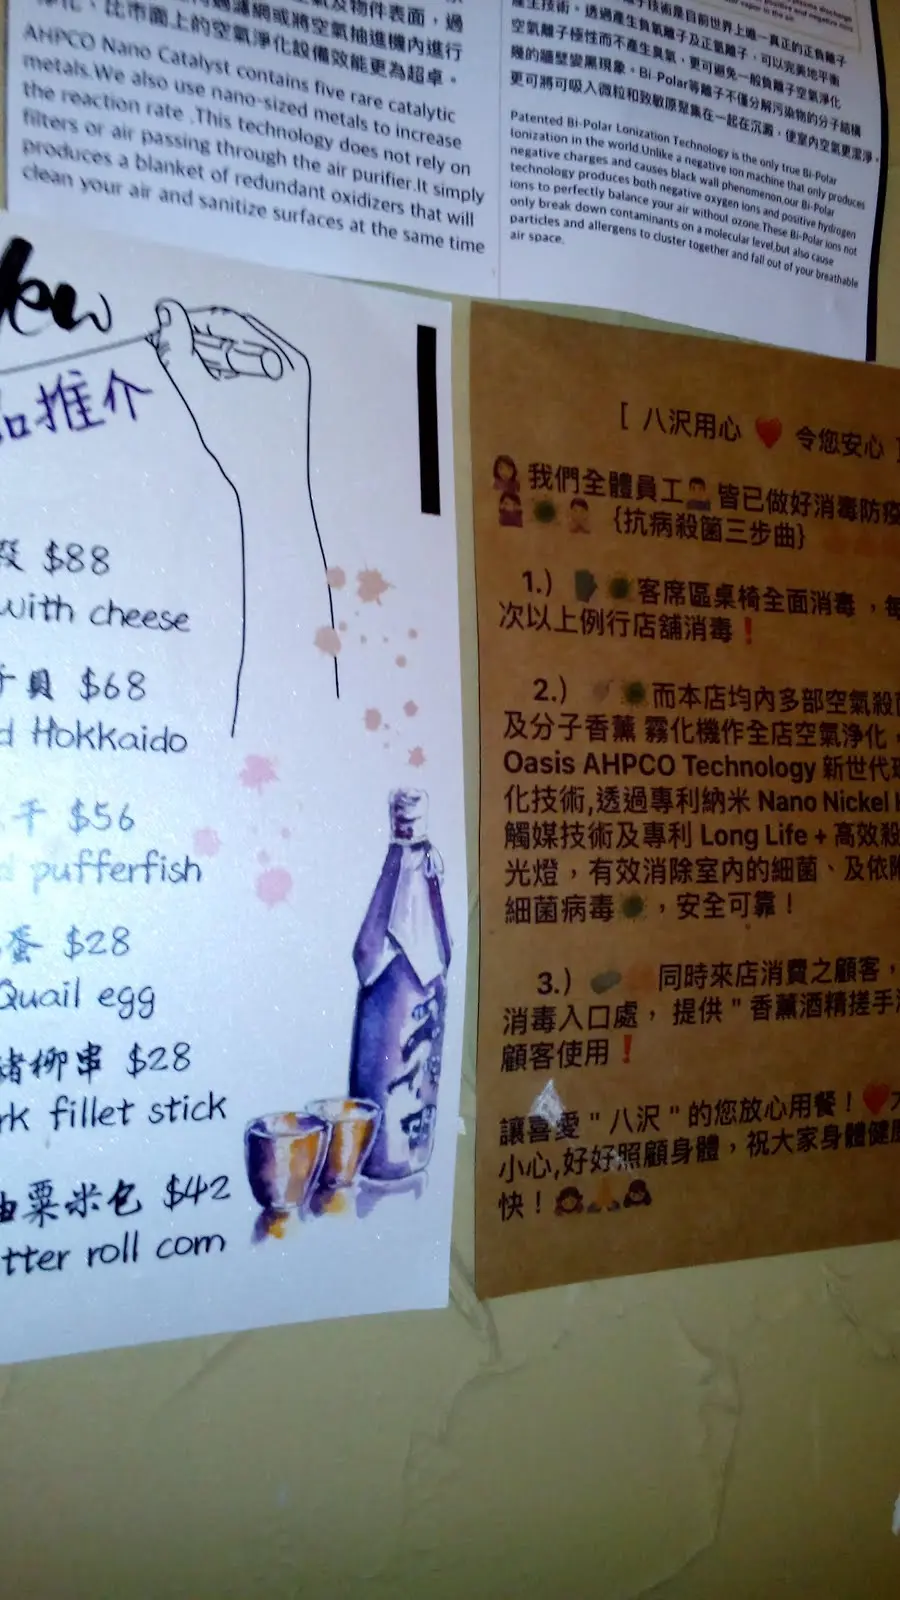 及物件表面，過
濾網或將空氣抽進機內進行
淨化，比市面上的空氣淨化設備效能更為超卓。
AHPCO Nano Catalyst contains five rare catalytic
metals.We also use nano-sized metals to increase
the reaction rate .This technology does not rely on
filters or air passing through the air purifier.It simply
produces a blanket of redundant oxidizers that will
clean your air and sanitize surfaces at the same time
技術是目前世界上唯一真正的正負離子
產生技術。透過產生負氧離子及正氫離子，可以完美地平衡
空氣離子極性而不產生臭氧，更可避免一般負離子空氣淨化
機的牆壁變黑現象。Bi-Polar等離子不僅分解污染物的分子結構
更可將可吸入微粒和致敏原聚集在一起在沉澱，使室內空氣更潔淨。
Patented Bi-Polar Lonization Technology is the only true Bi-Polar
Ionization in the world.Unlike a negative ion machine that only produces
negative charges and causes black wall phenomenon,our Bi-Polar
technology produces both negative oxygen ions and positive hydrogen
ions to perfectly balance your air without ozone.These Bi-Polar ions not
only break down contaminants on a molecular level,but also cause
particles and allergens to cluster together and fall out of your breathable
air space.
New
品推介
$88
with cheese
貝 $68
Hokkaido
干 $56
pufferfish
蛋 $28
Quail egg
豬柳串 $28
rk fillet stick
油粟米包 $42
tter roll corn
[ 八沢用心 ❤️ 令您安心 ]
我們全體員工 皆已做好消毒防疫
{抗病殺菌三步曲}
1.) 客席區桌椅全面消毒，每
次以上例行店舖消毒❗
2.) 而本店均內多部空氣殺菌
及分子香薰 霧化機作全店空氣淨化，
Oasis AHPCO Technology 新世代
化技術,透過專利納米 Nano Nickel
觸媒技術及專利 Long Life + 高效殺
光燈，有效消除室內的細菌、及依附
細菌病毒，安全可靠！
3.) 同時來店消費之顧客，
消毒入口處， 提供 " 香薰酒精搓手
顧客使用❗
讓喜愛 " 八沢 " 的您放心用餐！❤️大
小心,好好照顧身體，祝大家身體健康
快！